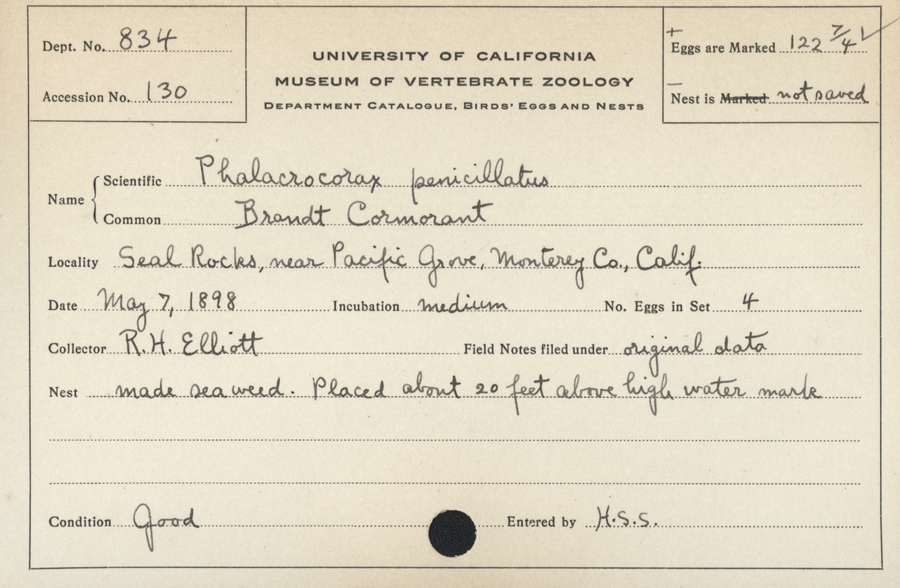 Dept. No. 834
Accession No. 130
UNIVERSITY OF CALIFORNIA
MUSEUM OF VERTEBRATE ZOOLOGY
DEPARTMENT CATALOGUE, BIRDS' EGGS AND NESTS
+
Eggs are Marked 122 7/4 ✓
—
Nest is Marked not saved
Name
Scientific Phalacrocorax penicillatus
Common Brandt Cormorant
Locality Seal Rocks, near Pacific Grove, Monterey Co., Calif.
Date May 7, 1898 Incubation medium No. Eggs in Set 4
Collector R.H. Elliott Field Notes filed under original data
Nest made seaweed. Placed about 20 feet above high water mark
Condition Good Entered by H.S.S.